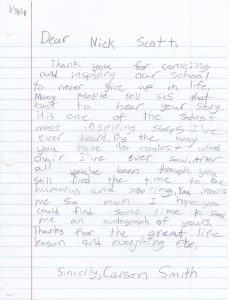 1/5/12
Dear Nick Scott,
Thank you for comeing
and inspiring our school
to never give up in life.
Many people tell us that
but to hear your story
it is one of the
most inspiring storys I've
ever heard, By the way
you have to coolest wheel
chair I've ever saw. After
all you've been through you
still find the time to be
humorus and inspiring, You inspire
me so much I hope you
could find some time to send
me an autograph of yours,
Thanks for the great life
leason and everything else.
Sincerly, Carson Smith